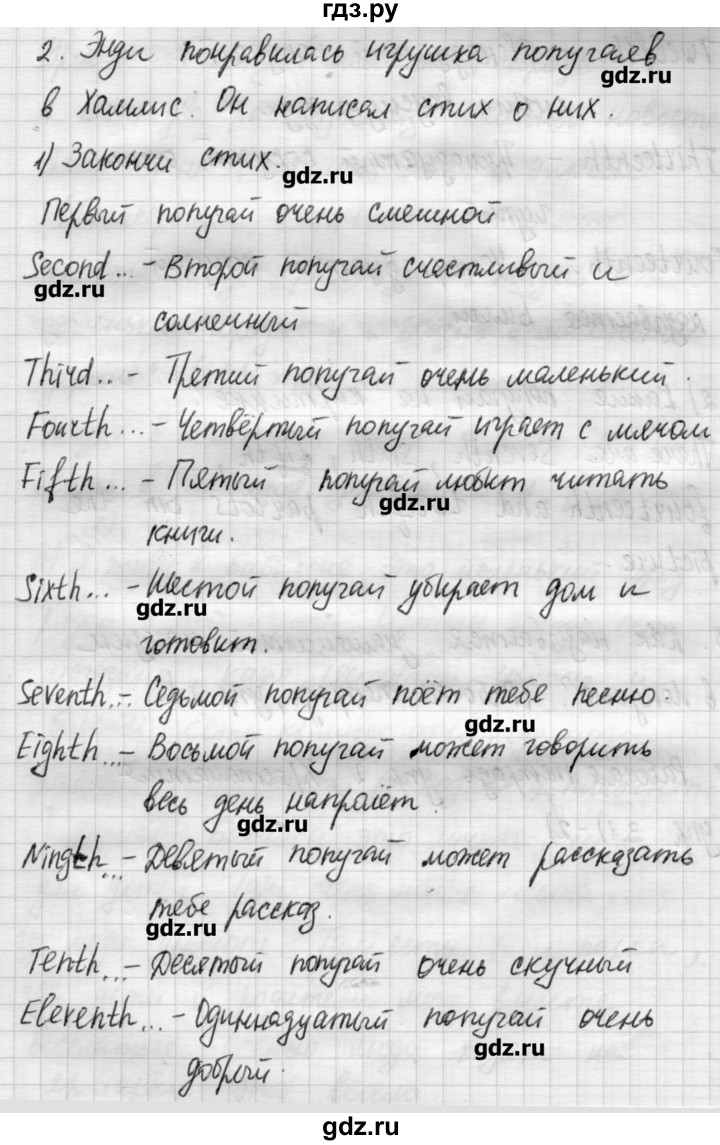 гдз.ру
2. Энди понравилась игрушка попугаев
gdz.ru
в Хамлис. Он написал стих о них.
1) Закончи стих.
gdz.ru
Первый попугай очень смешной
Second... - Второй попугай счастливый и
gdz.ru
солнечный
Third.. - Третий попугай очень маленький.
Fourth... - Четвёртый попугай играет с мячом
Fifth... - Пятый попугай любит читать
gdz.ru
книги.
Sixth... - Шестой попугай убирает дом и
gdz.ru
готовит.
Seventh... - Седьмой попугай поёт тебе песню.
gdz.ru
Eighth... - Восьмой попугай может говорить
весь день напралёт.
gdz.ru
Ningth... - Девятый попугай может рассказать
тебе рассказ.
gdz.ru
Tenth... - Десятый попугай очень скучный
Eleventh... - Одиннадцатый попугай очень
gdz.ru
добрый.
gdz.ru